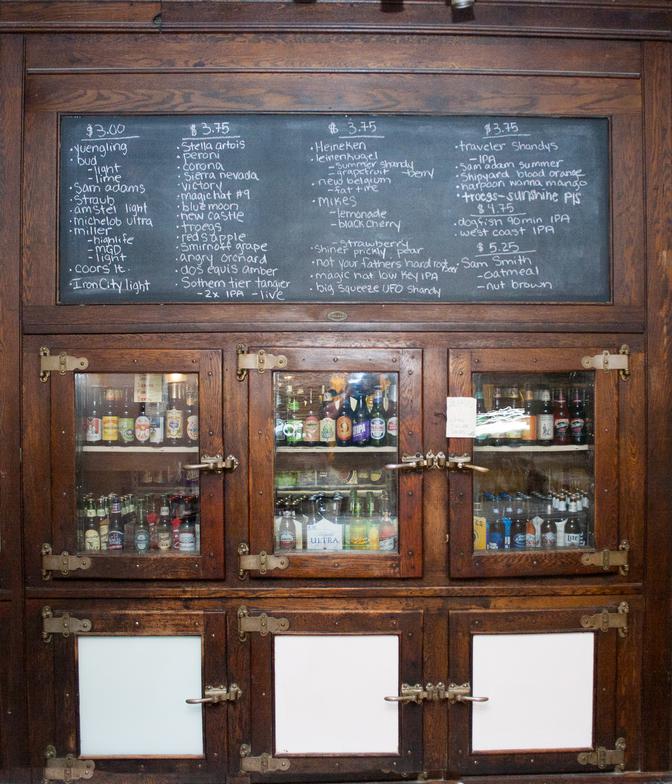 $3.00
• yuengling
• bud
- light
- lime
• Sam adams
• Straub
• amstel light
• michelob ultra
• miller
- highlife
- MGD
- light
• coors lt.
• Iron City light
$3.75
• Stella artois
• peroni
• corona
• Sierra nevada
• victory
• magic hat #9
• blue moon
• new castle
• troegs
• reds apple
• Smirnoff grape
• angry orchard
• dos equis amber
• Sothern tier tangier
- 2x IPA - live
$3.75
• Heineken
• leinenkugel
- summer shandy
- grapefruit - berry
• new belgium
- fat tire
• MIKES
- lemonade
- black cherry
- strawberry
• Shiner prickly pear
• not your fathers hard root beer
• magic hat low key IPA
• big squeeze UFO shandy
$3.75
• traveler shandys
- IPA
• Sam adam summer
• Shipyard blood orange
• harpoon wanna mango
• troegs - sunshine pils
$4.75
• dogfish 90min IPA
• west coast IPA
$5.25
• Sam Smith
- oatmeal
- nut brown
ULTRA
Lite